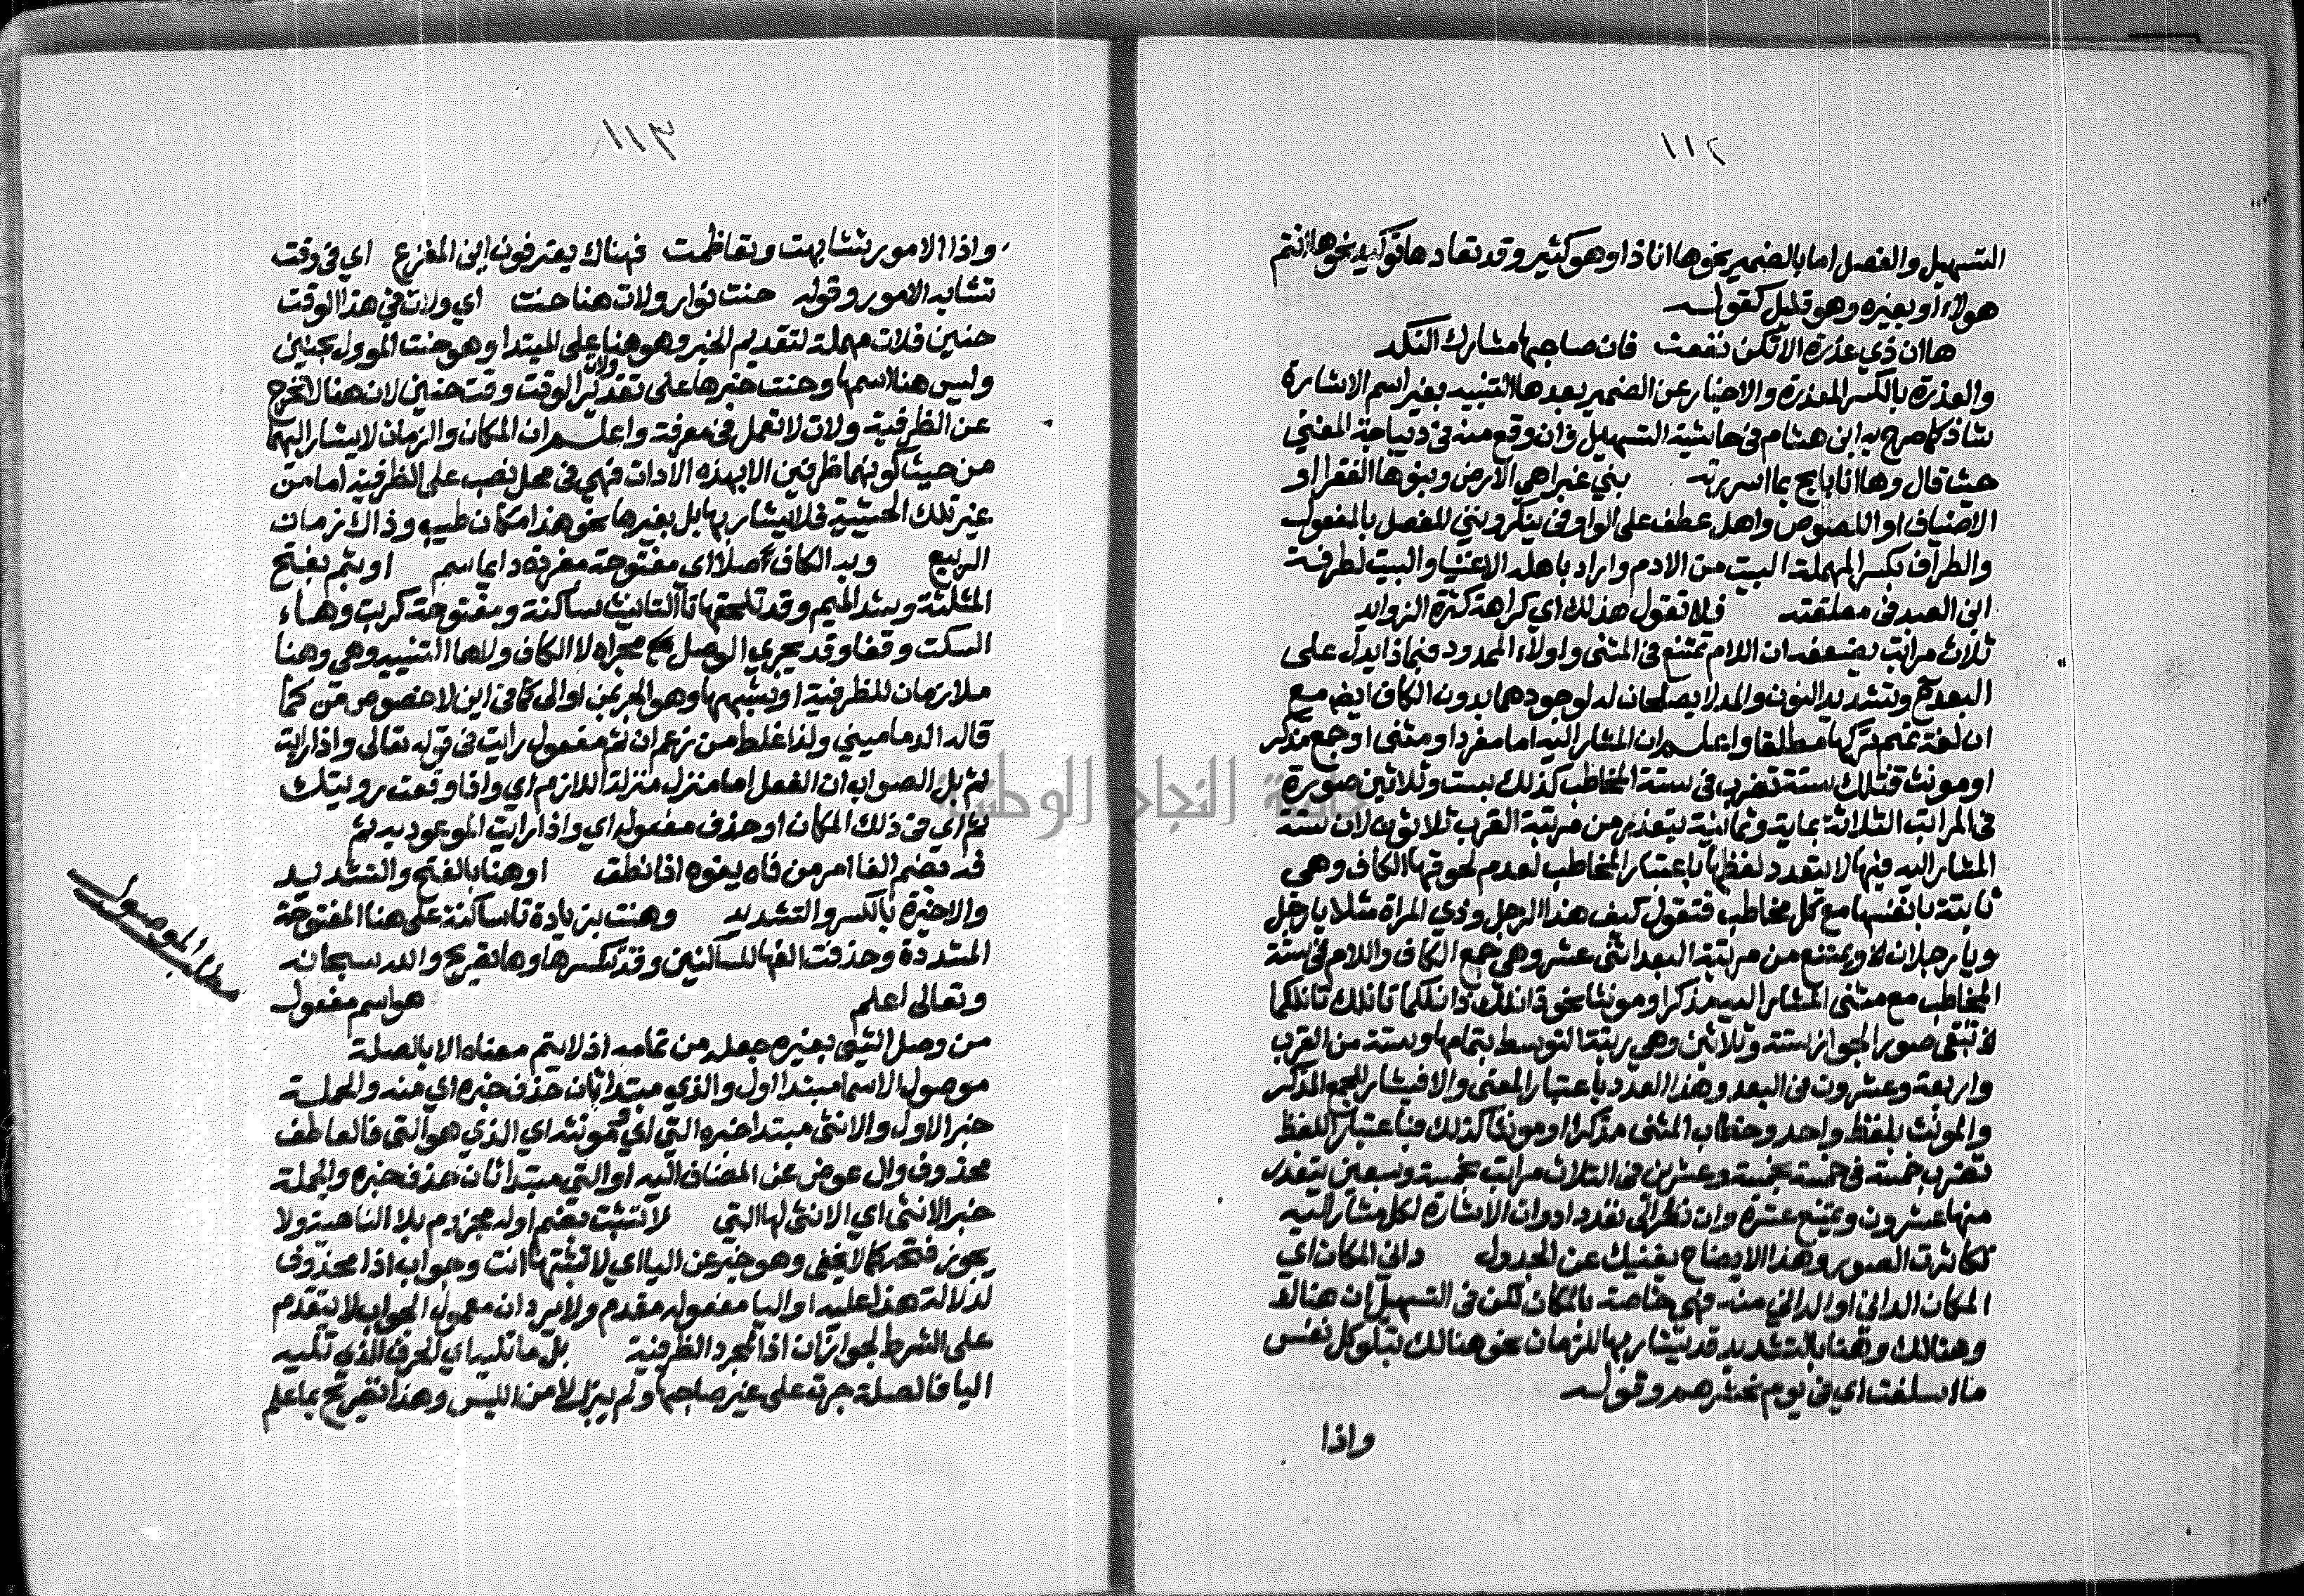 ١١٢
التسهيل والفصل اما بالضمير نحو ها انا ذا وهو كثير وقد تعاد ها توكيد نحو ها انتم
هولاء او بغيره وهو قليل كقوله
ها ان ذي عذرة الا تكن نفعت فان صاحبها مشارك النكد
والعذرة بالكسر المعذرة والاخبار عن الضمير بعد ها التنبيه بغير اسم الاشارة
شاذ كما صرح به ابن هشام في حاشية التسهيل وان وقع منه في ديباجة المغني
حيث قال وها انا بايح بما اسررته بني غبرا هي الارض وبنوها الفقرا او
الاضياف او اللصوص واهل عطف على الواو في ينكرونني للفصل بالمفعول
والطراف بكسر المهملة البيت من الادم واراد باهله الاغنيا والبيت لطرفة
ابن العبد في معلقته فلا تقول هذلك اي كراهة كثرة الزوايد
ثلاث مراتب يضعفه ان اللام تمتنع في المثنى واولاء الممدود فبماذا يدل على
البعد وتشديد النون والمد لا يصلحان له لوجودهما بدون الكاف ايضا مع
ان لغة تميم تركها مطلقا واعلم ان المشار اليه اما مفرد او مثنى او جمع مذكر
او مونث فتلك ستة تضرب في ستة المخاطب كذلك بست وثلاثين صورة
في المراتب الثلاثة بماية وثمانية يتعذر من مرتبة القرب ثلاثون لان ستة
المشار اليه فيها لا يتعدد لفظها باعتبار المخاطب لعدم لحوقها الكاف وهي
ثابتة بانفسها مع كل مخاطب فتقول كيف هذا الرجل وذي المراة مثلا يا رجل
ويا رجلان ويمتنع من مرتبة البعد اثنى عشر وهي جمع الكاف واللام في ستة
المخاطب مع مثنى المشار اليه مذكرا ومونثا نحو ذانلك ذانلكما تانلك تانلكما
تبقى صور الجواز ستة وثلاثين وهي رتبة التوسط بتمامها وستة من القرب
واربعة وعشرون في البعد وهذا العدد باعتبار المعنى والا فيشار للجمع المذكر
والمونث بلفظ واحد وخطاب المثنى مذكرا او مونثا كذلك فباعتبار اللفظ
تضرب خمسة في خمسة بخمسة وعشرين في الثلاث مراتب بخمسة وسبعين يتعذر
منها عشرون ويمتنع عشرة وان نظر الى تعدد ادوات الاشارة لكل مشار اليه
تكاثرت الصور وهذا الايضاح يغنيك عن الجدول داني المكان اي
المكان الداني او الداني منه فهي خاصة بالمكان لكن في التسهيل ان هناك
وهنالك وهنا بالتشديد قد يشار بها للزمان نحو هنالك تبلو كل نفس
ما اسلفت اي في يوم نحشرهم وقوله
واذا
١١٣
واذا الامور تشابهت وتعاظمت فهناك يعترفون اين المفزع اي في وقت
تشابه الامور وقوله حنت نوار ولات هنا حنت اي ولات في هذا الوقت
حنين فلات مهملة لتقديم الخبر وهو هنا على المبتدا وهو حنت الموول بحنين
وليس هنا اسمها وحنت خبرها على تقدير ولات الوقت وقت حنين لان هنا لا تخرج
عن الظرفية ولات لا تعمل في معرفة واعلم ان المكان والزمان لا يشار اليهما
من حيث كونهما ظرفين الا بهذه الادات فهي في محل نصب على الظرفية اما من
غير تلك الحيثية فلا يشار بها بل بغيرها نحو هذا مكان طيب وذاك زمان
الربيع وبه الكاف صلا اي مفتوحة مفردة دايما سم او بثم بفتح
المثلثة وشد الميم وقد تلحقها تا التانيث ساكنة ومفتوحة كربت وهاء
السكت وقفا وقد يجري الوصل مجراه لا الكاف ولا ها التنبيه وهي وهنا
ملازمان للظرفية او شبهها وهو الجر بمن او الى كما في اين لا خصوص من كما
قاله الدماميني ولذا غلط من زعم ان ثم مفعول رايت في قوله تعالى واذا رايت
ثم بل الصواب ان الفعل اما منزل منزلة اللازم اي واذا وقعت رويتك
ثم اي في ذلك المكان او حذف مفعوله اي واذا رايت الموعود به ثم
فه بضم الفا امر من فاه يفوه اذا نطق او هنا بالفتح والتشديد
والاخيرة بالكسر والتشديد وهنت بزيادة تا ساكنة على هنا المفتوحة
المشددة وحذفت الفها للساكنين وقد تكسر هاوها تصريح والله سبحانه
وتعالى اعلم هو اسم مفعول
مطلب الموصول
من وصل الشي بغيره جعله من تمامه اذ لا يتم معناه الا بالصلة
موصول الاسما مبتدا اول والذي مبتدا ثان حذف خبره اي منه والجملة
خبر الاول والانثى مبتدا خبره التي اي ومونثه اي الذي هو التي فالعاطف
محذوف وال عوض عن المضاف اليه او التي مبتدا ثان حذف خبره والجملة
خبر الانثى اي الانثى لها التي لا تثبت بضم اوله مجزوم بلا الناهية ولا
يجوز فتحه كما لا يخفى وهو خبر عن اليا اي لا تثبتها انت وجواب اذا محذوف
لدلالة هذا عليه او اليا مفعوله مقدم ولا يرد ان معمول الجواب لا يتقدم
على الشرط لجواز ان اذا لمجرد الظرفية بل ما تليه اي الحرف الذي تليه
اليا فالصلة جرت على غير صاحبها ولم يبرز لامن اللبس وهذا تصريح بما علم